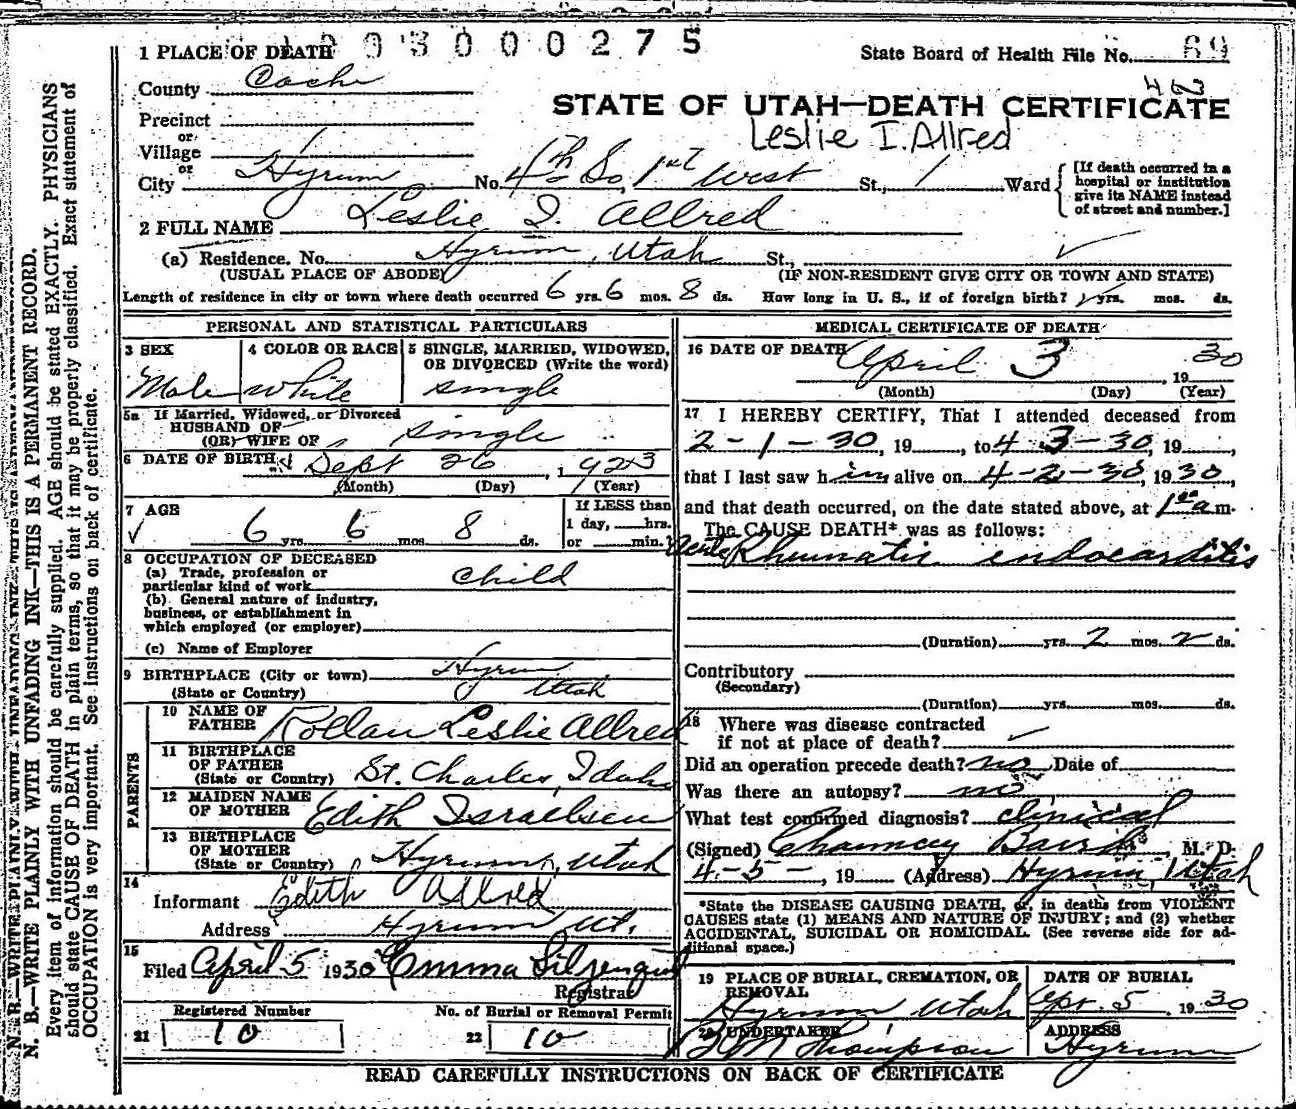 1 PLACE OF DEATH
003000275
State Board of Health File No. 69
County Cache
STATE OF UTAH—DEATH CERTIFICATE
Precinct
Leslie I. Allred
or
Village
or
City Hyrum No. 4th So, 1st West St., 1 Ward
[If death occurred in a hospital or institution give its NAME instead of street and number.]
2 FULL NAME Leslie I. Allred
(a) Residence. No. Hyrum, Utah St.,
(USUAL PLACE OF ABODE) (IF NON-RESIDENT GIVE CITY OR TOWN AND STATE)
Length of residence in city or town where death occurred 6 yrs. 6 mos. 8 ds. How long in U. S., if of foreign birth? yrs. mos. ds.
PERSONAL AND STATISTICAL PARTICULARS
3 SEX 4 COLOR OR RACE 5 SINGLE, MARRIED, WIDOWED,
OR DIVORCED (Write the word)
Male white single
5a If Married, Widowed, or Divorced
HUSBAND OF
(OR) WIFE OF single
6 DATE OF BIRTH Sept 26, 1923
(Month) (Day) (Year)
7 AGE If LESS than
1 day, hrs.
6 yrs. 6 mos. 8 ds. or min.
8 OCCUPATION OF DECEASED
(a) Trade, profession or
particular kind of work child
(b) General nature of industry,
business, or establishment in
which employed (or employer)
(c) Name of Employer
9 BIRTHPLACE (City or town) Hyrum
(State or Country) Utah
PARENTS
10 NAME OF
FATHER Rollan Leslie Allred
11 BIRTHPLACE
OF FATHER
(State or Country) St. Charles, Idaho
12 MAIDEN NAME
OF MOTHER Edith Israelsen
13 BIRTHPLACE
OF MOTHER
(State or Country) Hyrum, Utah
14
Informant Edith Allred
Address Hyrum Ut.
15
Filed April 5 1930 Emma
Registrar
Registered Number No. of Burial or Removal Permit
21 10 22 10
MEDICAL CERTIFICATE OF DEATH
16 DATE OF DEATH April 3, 1930
(Month) (Day) (Year)
17 I HEREBY CERTIFY, That I attended deceased from
2-1-30, 19, to 4-3-30, 19,
that I last saw him alive on 4-2-30, 1930,
and that death occurred, on the date stated above, at 1 a m.
The CAUSE DEATH* was as follows:
Acute Rheumatic endocarditis
(Duration) yrs. 2 mos. 2 ds.
Contributory
(Secondary)
(Duration) yrs. mos. ds.
18 Where was disease contracted
if not at place of death?
Did an operation precede death? no Date of
Was there an autopsy? no
What test confirmed diagnosis? clinical
(Signed) Chauncey, M. D.
4-5-, 19 (Address) Hyrum, Utah
*State the DISEASE CAUSING DEATH, or, in deaths from VIOLENT
CAUSES state (1) MEANS AND NATURE OF INJURY; and (2) whether
ACCIDENTAL, SUICIDAL OR HOMICIDAL. (See reverse side for ad-
ditional space.)
19 PLACE OF BURIAL, CREMATION, OR DATE OF BURIAL
REMOVAL
Hyrum Utah Apr. 5, 1930
20 UNDERTAKER ADDRESS
Thompson Hyrum
READ CAREFULLY INSTRUCTIONS ON BACK OF CERTIFICATE
N. B.—WRITE PLAINLY WITH UNFADING INK—THIS IS A PERMANENT RECORD.
Every item of information should be carefully supplied. AGE should be stated EXACTLY. PHYSICIANS
should state CAUSE OF DEATH in plain terms, so that it may be properly classified. Exact statement of
OCCUPATION is very important. See instructions on back of certificate.